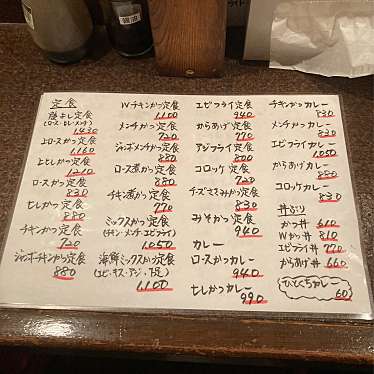 定食
藤よし定食
(ロース・ヒレ・メンチ)
1430
上ロースかつ定食
1160
上とじかつ定食
1210
ロースかつ定食
830
ヒレかつ定食
880
チキンかつ定食
720
ジャンボーチキンかつ定食
880
Wチキンかつ定食
1100
メンチかつ定食
720
ジャンボメンチかつ定食
880
ロース煮かつ定食
880
チキン煮かつ定食
770
ミックスかつ定食
(チキン・メンチ・エビフライ)
1050
海鮮ミックスかつ定食
1,100
エビフライ定食
940
からあげ定食
770
アジフライ定食
800
コロッケ定食
720
チーズささみかつ定食
830
みそかつ定食
940
カレー
ロースかつカレー
940
ヒレかつカレー
990
チキンかつカレー
830
メンチかつカレー
830
エビフライカレー
1050
からあげカレー
880
コロッケカレー
830
丼ぶり
かつ丼 610
Wかつ丼 810
エビフライ丼 770
からあげ丼 660
ひとくちカレー
60